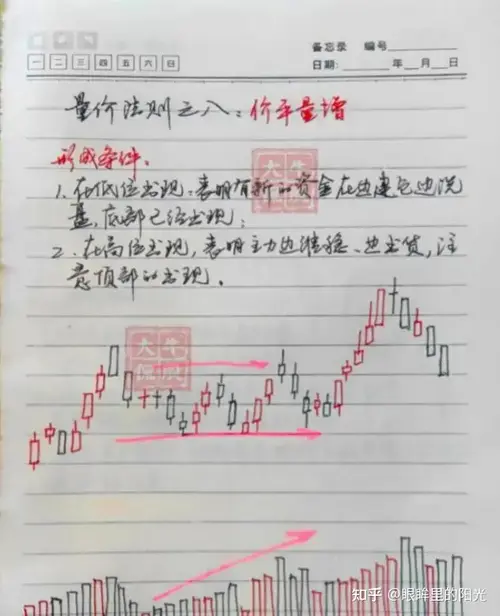 备忘录 编号
一 二 三 四 五 六 日
日期: 年 月 日
量价法则之八:价平量增
形成条件:
1、在低位出现:表明有新的资金在边建仓边洗
盘,底部已经出现;
2、在高位出现,表明主力边维稳、边出货,注
意顶部的出现。
大牛
侃股
大牛
侃股
知乎 @眼眸里的阳光